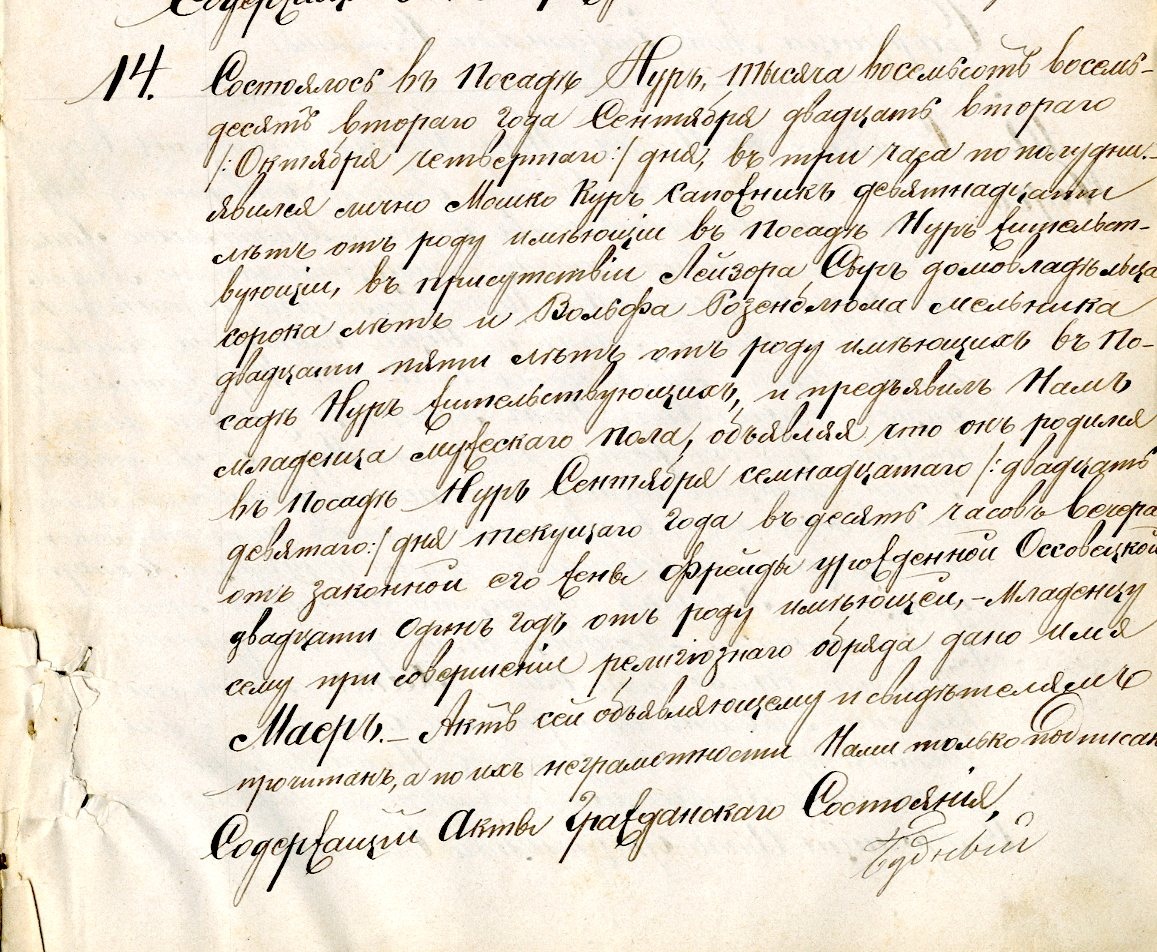 14. Состоялось въ Посадѣ Нуръ, тысяча восемьсотъ восемь-
десятъ втораго года Сентября двадцать втораго
/: Октября четвертаго :/ дня, въ три часа по полудни.–
явился лично Мошко Куръ сапожникъ девятнадцати
лѣтъ отъ роду имѣющій въ Посадѣ Нуръ жительст-
вующій, въ присутствіи Лейзора Сбуръ домовладѣльца
сорока лѣтъ и Вольфа Розенблюма мельника
двадцати пяти лѣтъ отъ роду имѣющихъ въ По-
садѣ Нуръ жительствующихъ, и предъявилъ Намъ
младенца мужескаго пола, объявляя что онъ родился
въ Посадѣ Нуръ Сентября семнадцатаго /: двадцать
девятаго :/ дня текущаго года въ десять часовъ вечера
отъ законной его жены Фрейды урожденной Оссовецкой
двадцати одинъ годъ отъ роду имѣющей, – Младенцу
сему при совершеніи религіознаго обряда дано имя
Маеръ. – Актъ сей объявляющему и свидѣтелямъ
прочитанъ, а по ихъ неграмотности Нами только подписан
Содержащій Акты Гражданскаго Состоянія,
Будный